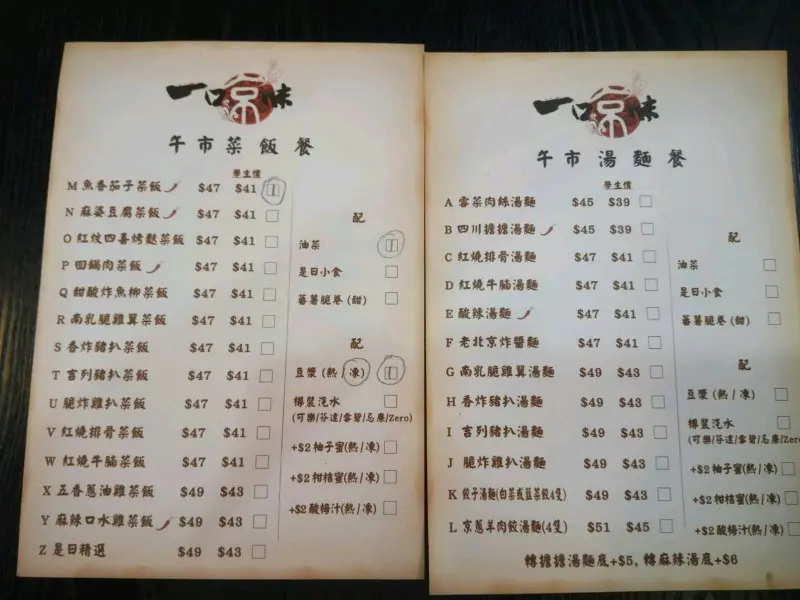 一口京味
午市菜飯餐
學生價
M 魚香茄子菜飯 $47 $41
N 麻婆豆腐菜飯 $47 $41
O 紅炆四喜烤麩菜飯 $47 $41
P 回鍋肉菜飯 $47 $41
Q 甜酸炸魚柳菜飯 $47 $41
R 南乳脆雞翼菜飯 $47 $41
S 香炸豬扒菜飯 $47 $41
T 吉列豬扒菜飯 $47 $41
U 脆炸雞扒菜飯 $47 $41
V 紅燒排骨菜飯 $47 $41
W 紅燒牛腩菜飯 $47 $41
X 五香蔥油雞菜飯 $49 $43
Y 麻辣口水雞菜飯 $49 $43
Z 是日精選 $49 $43
配
油菜
是日小食
蕃薯脆卷 (甜)
配
豆漿 (熱/凍)
樽裝汽水
(可樂/芬達/雪碧/忌廉/Zero)
+$2 柚子蜜(熱/凍)
+$2 柑桔蜜(熱/凍)
+$2 酸梅汁(熱/凍)
一口京味
午市湯麵餐
學生價
A 雪菜肉絲湯麵 $45 $39
B 四川擔擔湯麵 $45 $39
C 紅燒排骨湯麵 $47 $41
D 紅燒牛腩湯麵 $47 $41
E 酸辣湯麵 $47 $41
F 老北京炸醬麵 $47 $41
G 南乳脆雞翼湯麵 $49 $43
H 香炸豬扒湯麵 $49 $43
I 吉列豬扒湯麵 $49 $43
J 脆炸雞扒湯麵 $49 $43
K 餃子湯麵(白菜或韮菜餃4隻) $49 $43
L 京蔥羊肉餃湯麵(4隻) $51 $45
配
油菜
是日小食
蕃薯脆卷 (甜)
配
豆漿 (熱/凍)
樽裝汽水
(可樂/芬達/雪碧/忌廉/Zero
+$2 柚子蜜(熱/凍)
+$2 柑桔蜜(熱/凍)
+$2 酸梅汁(熱/凍)
轉擔擔湯麵底+$5, 轉麻辣湯底+$6